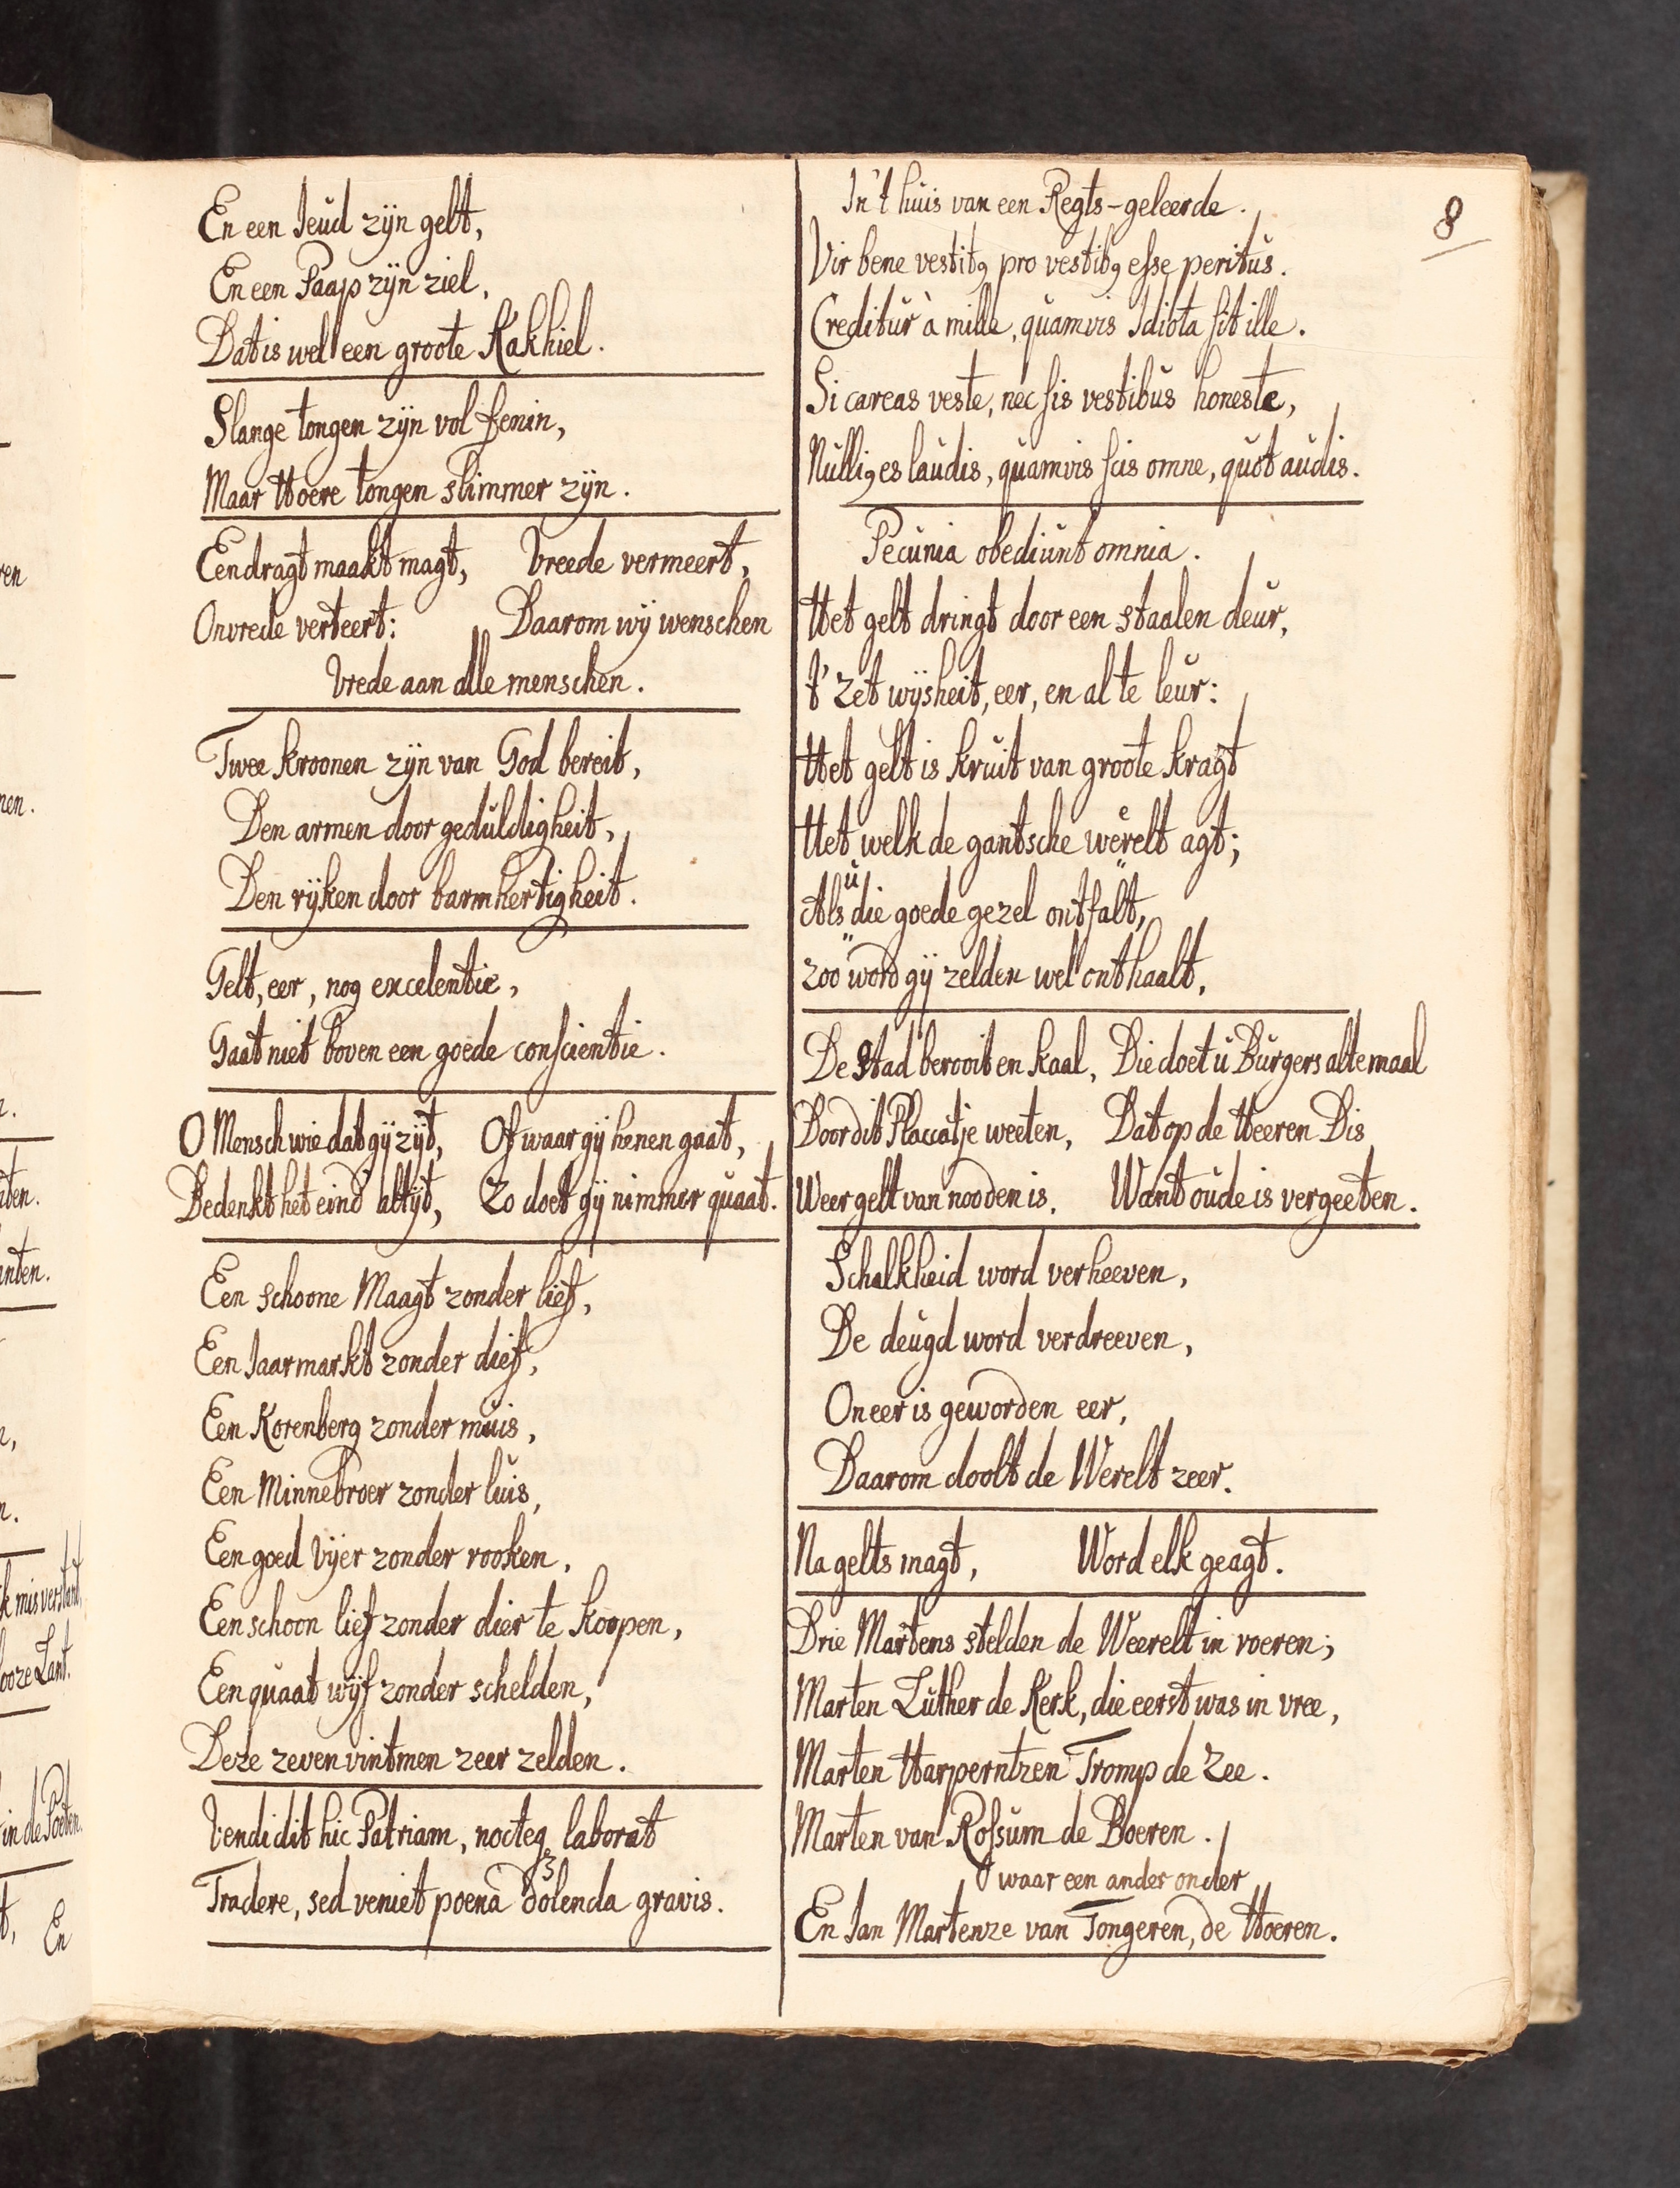 8
En een Jeud zijn gelt,
En een Paap zijn ziel,
Dat is wel een groote Kakhiel.
Slange tongen zijn vol fenin,
Maar Hoere tongen slimmer zijn.
Eendragt maakt magt, Vreede vermeert,
Onvrede verteert: Daarom wij wenschen
Vrede aan alle menschen.
Twee kroonen zijn van God bereit,
Den armen door geduldigheit,
Den rijken door barmhertigheit.
Gelt, eer, nog excelentie,
Gaat niet boven een goede conscientie.
O Mensch wie dat gij zijt, Of waar gij henen gaat,
Bedenkt het eind altijt, Zo doet gij nimmer quaat.
Een schoone Maagt zonder lief,
Een Jaarmarkt zonder dief,
Een Korenberg zonder muis,
Een Minnebroer zonder luis,
Een goed Vijer zonder rooken,
Een schoon lief zonder dier te koopen,
Een quaat wijf zonder schelden,
Deze zeven vintmen zeer zelden.
Vendidit hic Patriam, nocteq laborat
Tradere, sed veniet poena dolenda gravis.
In't huis van een Regts-geleerde.
Vir bene vestitq pro vestibq esse peritus.
Creditur à mille, quamvis Idiota sit ille.
Si careas veste, nec sis vestibus honeste,
Nulliq es laudis, quamvis scis omne, quot audis.
Pecunia obediunt omnia.
Het gelt dringt door een staalen deur,
t' Zet wijsheit, eer, en al te leur:
Het gelt is kruit van groote kragt
Het welk de gantsche werelt agt;
Als u die goede gezel ontfalt,
zoo word gij zelden wel onthaalt,
De Stad berooit en kaal, Die doet u Burgers altemaal
Door dit Placcatje weeten, Dat op de Heeren Dis
Weer gelt van nooden is, Want oude is vergeeten.
Schalkheid word verheeven,
De deugd word verdreeven,
Oneer is geworden eer,
Daarom doolt de Werelt zeer.
Na gelts magt, Word elk geagt.
Drie Martens stelden de Weerelt in roeren;
Marten Luther de Kerk, die eerst was in vree,
Marten Harperntzen Tromp de Zee.
Marten van Rossum de Boeren.
O waar een ander onder
En Jan Martenze van Tongeren, de Hoeren.